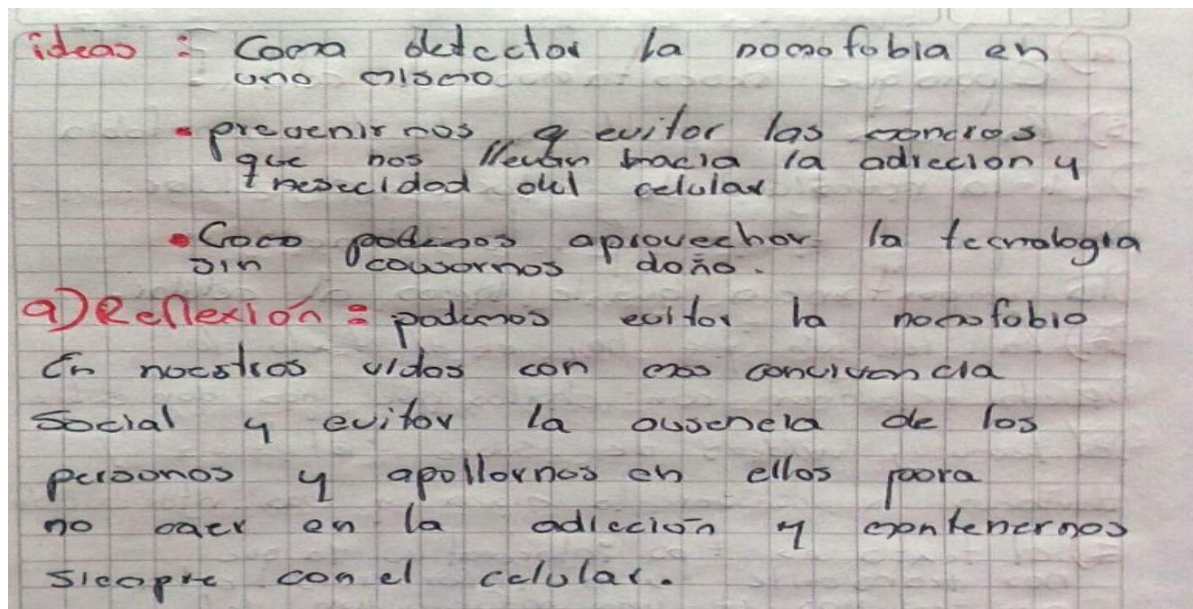 ideas : Como detectar la nomofobia en
uno mismo
• prevenirnos a evitar las maneras
que nos llevan hacia la adiccion y
nesecidad del celular
• Como podemos aprovechar la tecnologia
sin causarnos daño.
a) Reflexión : podemos evitar la nomofobia
En nuestras vidas con mas convivencia
Social y evitar la ausencia de las
personas y apollarnos en ellos para
no caer en la adiccion y mantenernos
siempre con el celular.